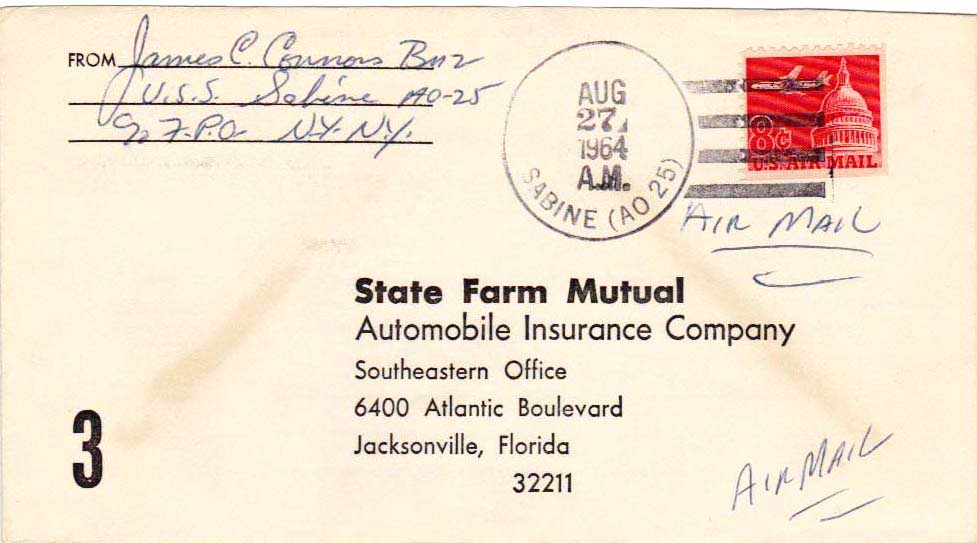 FROM James C. Connors BM2
U.S.S. Sabine AO-25
℅ F.P.O. N.Y. N.Y.
AUG
27
1964
A.M.
SABINE (AO 25)
8¢
U.S. AIR MAIL
AIR MAIL
State Farm Mutual
Automobile Insurance Company
Southeastern Office
6400 Atlantic Boulevard
Jacksonville, Florida
32211
3
AIR MAIL